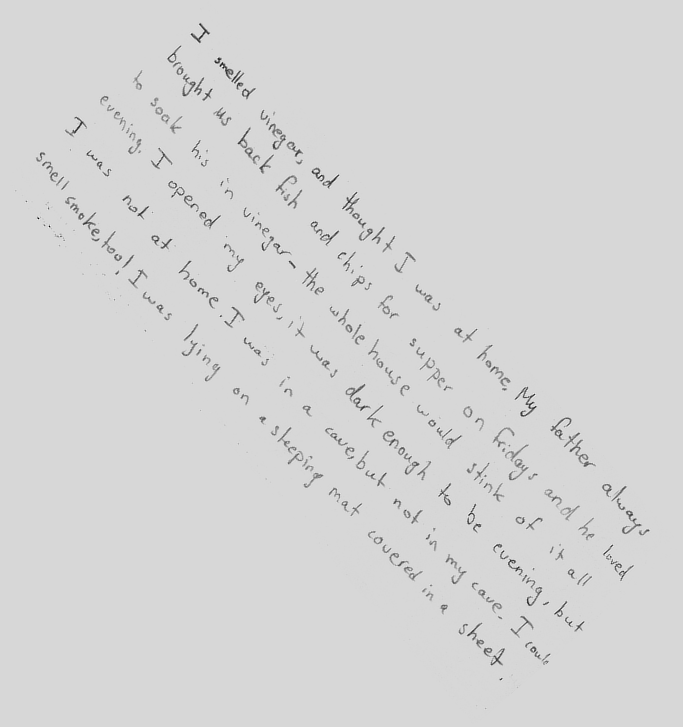 I smelled vinegar, and thought I was at home. My father always
brought us back fish and chips for supper on Fridays and he loved
to soak his in vinegar - the whole house would stink of it all
evening. I opened my eyes, it was dark enough to be evening, but
I was not at home. I was in a cave, but not in my cave. I could
smell smoke, too! I was lying on a sleeping mat covered in a sheet.